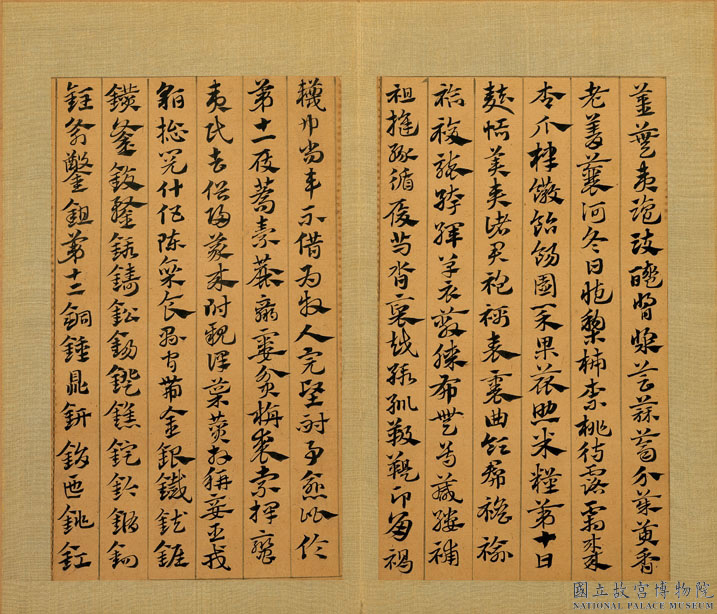 薑蕪夷塩豉醯酢漿芸蒜薺介茱萸香
老菁蘘河冬日藏梨柿柰桃待露霜棗
杏瓜棣饊飴餳園菜果蓏助米糧第十甘
麩恬美奏諸君袍襦表裏曲領帬襜褕
袷複褶袴褌單衣蔽膝布無尊箴縷補
袒摧緣循履舄沓裒越緞紃靸鞮卬角褐
韤巾尚韋不借為牧人完堅耐事愈比倫
第十一屐蕎素麤羸窶貧旃裘索擇蠻
夷民去俗歸義來附親譯導贊拜稱妾臣戎
貊總閱什伍陳稟食縣官帶金銀鐵鈇錐
鑽釜鍑鍪鍛鑄鉛錫鐙鐎錠鈐鉤
銍斧鑿鉏第十二銅鍾鼎鈃鋗鉇銚釭
國立故宮博物院
NATIONAL PALACE MUSEUM